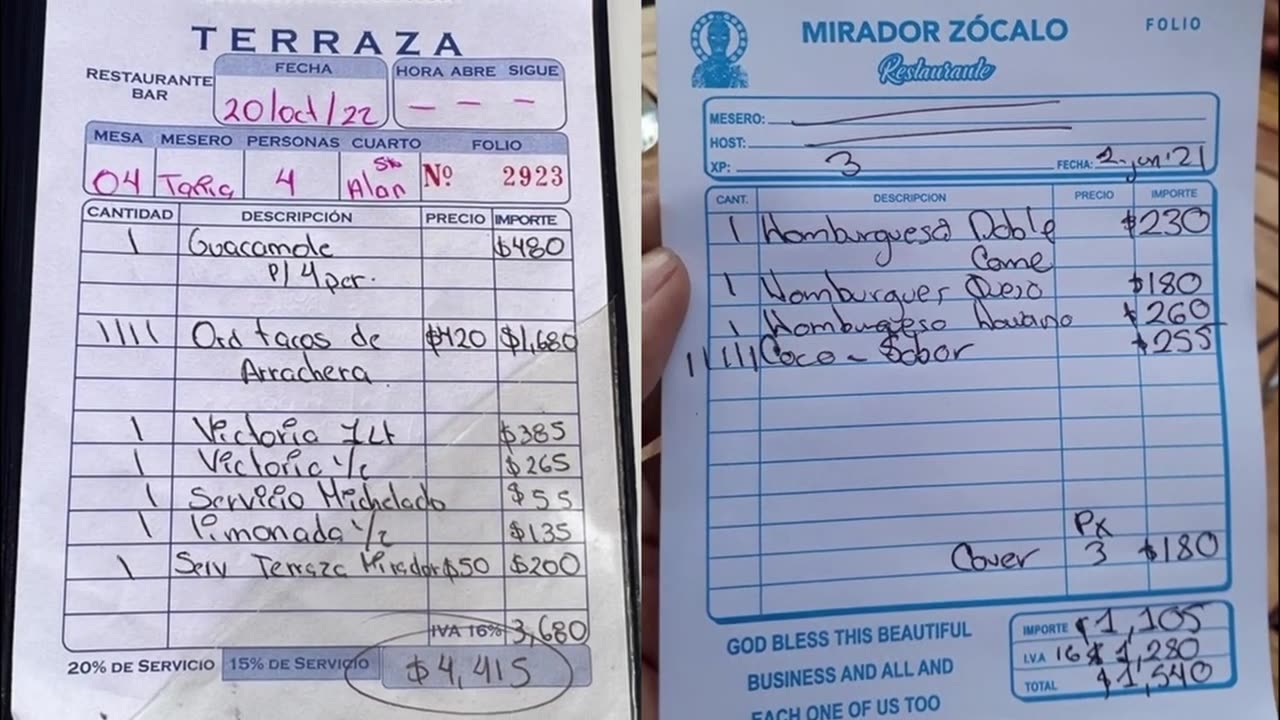 TERRAZA
RESTAURANTE
BAR
FECHA
20/oct/22
HORA ABRE SIGUE
— — —
MESA MESERO PERSONAS CUARTO FOLIO
04 Tania 4 Sr. Alan Nº 2923
CANTIDAD DESCRIPCIÓN PRECIO IMPORTE
1 Guacamole $480
p/ 4 per.
1111 Ord tacos de $420 $1,680
Arrachera
1 Victoria 1Lt $385
1 Victoria 1/2 $265
1 Servicio Michelado $55
1 Limonada 1/2 $135
1 Serv Terraza Mirador $50 $200
IVA 16% 3,680
20% DE SERVICIO 15% DE SERVICIO $4,415
MIRADOR ZÓCALO
Restaurante
FOLIO
MESERO:
HOST:
XP: 3 FECHA: 2-jun'21
CANT. DESCRIPCION PRECIO IMPORTE
1 Hamburguesa Doble $230
Carne
1 Hamburgues Queso $180
1 Hamburgueso Hawaiano $260
11111 Coco - Sabor $255
Px
Cover 3 $180
IMPORTE $1,105
I.V.A 16% $1,280
TOTAL $1,540
GOD BLESS THIS BEAUTIFUL
BUSINESS AND ALL AND
EACH ONE OF US TOO